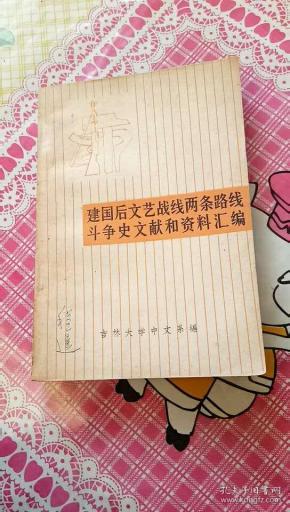 建国后文艺战线两条路线
斗争史文献和资料汇编
吉林大学中文系编
孔夫子旧书网